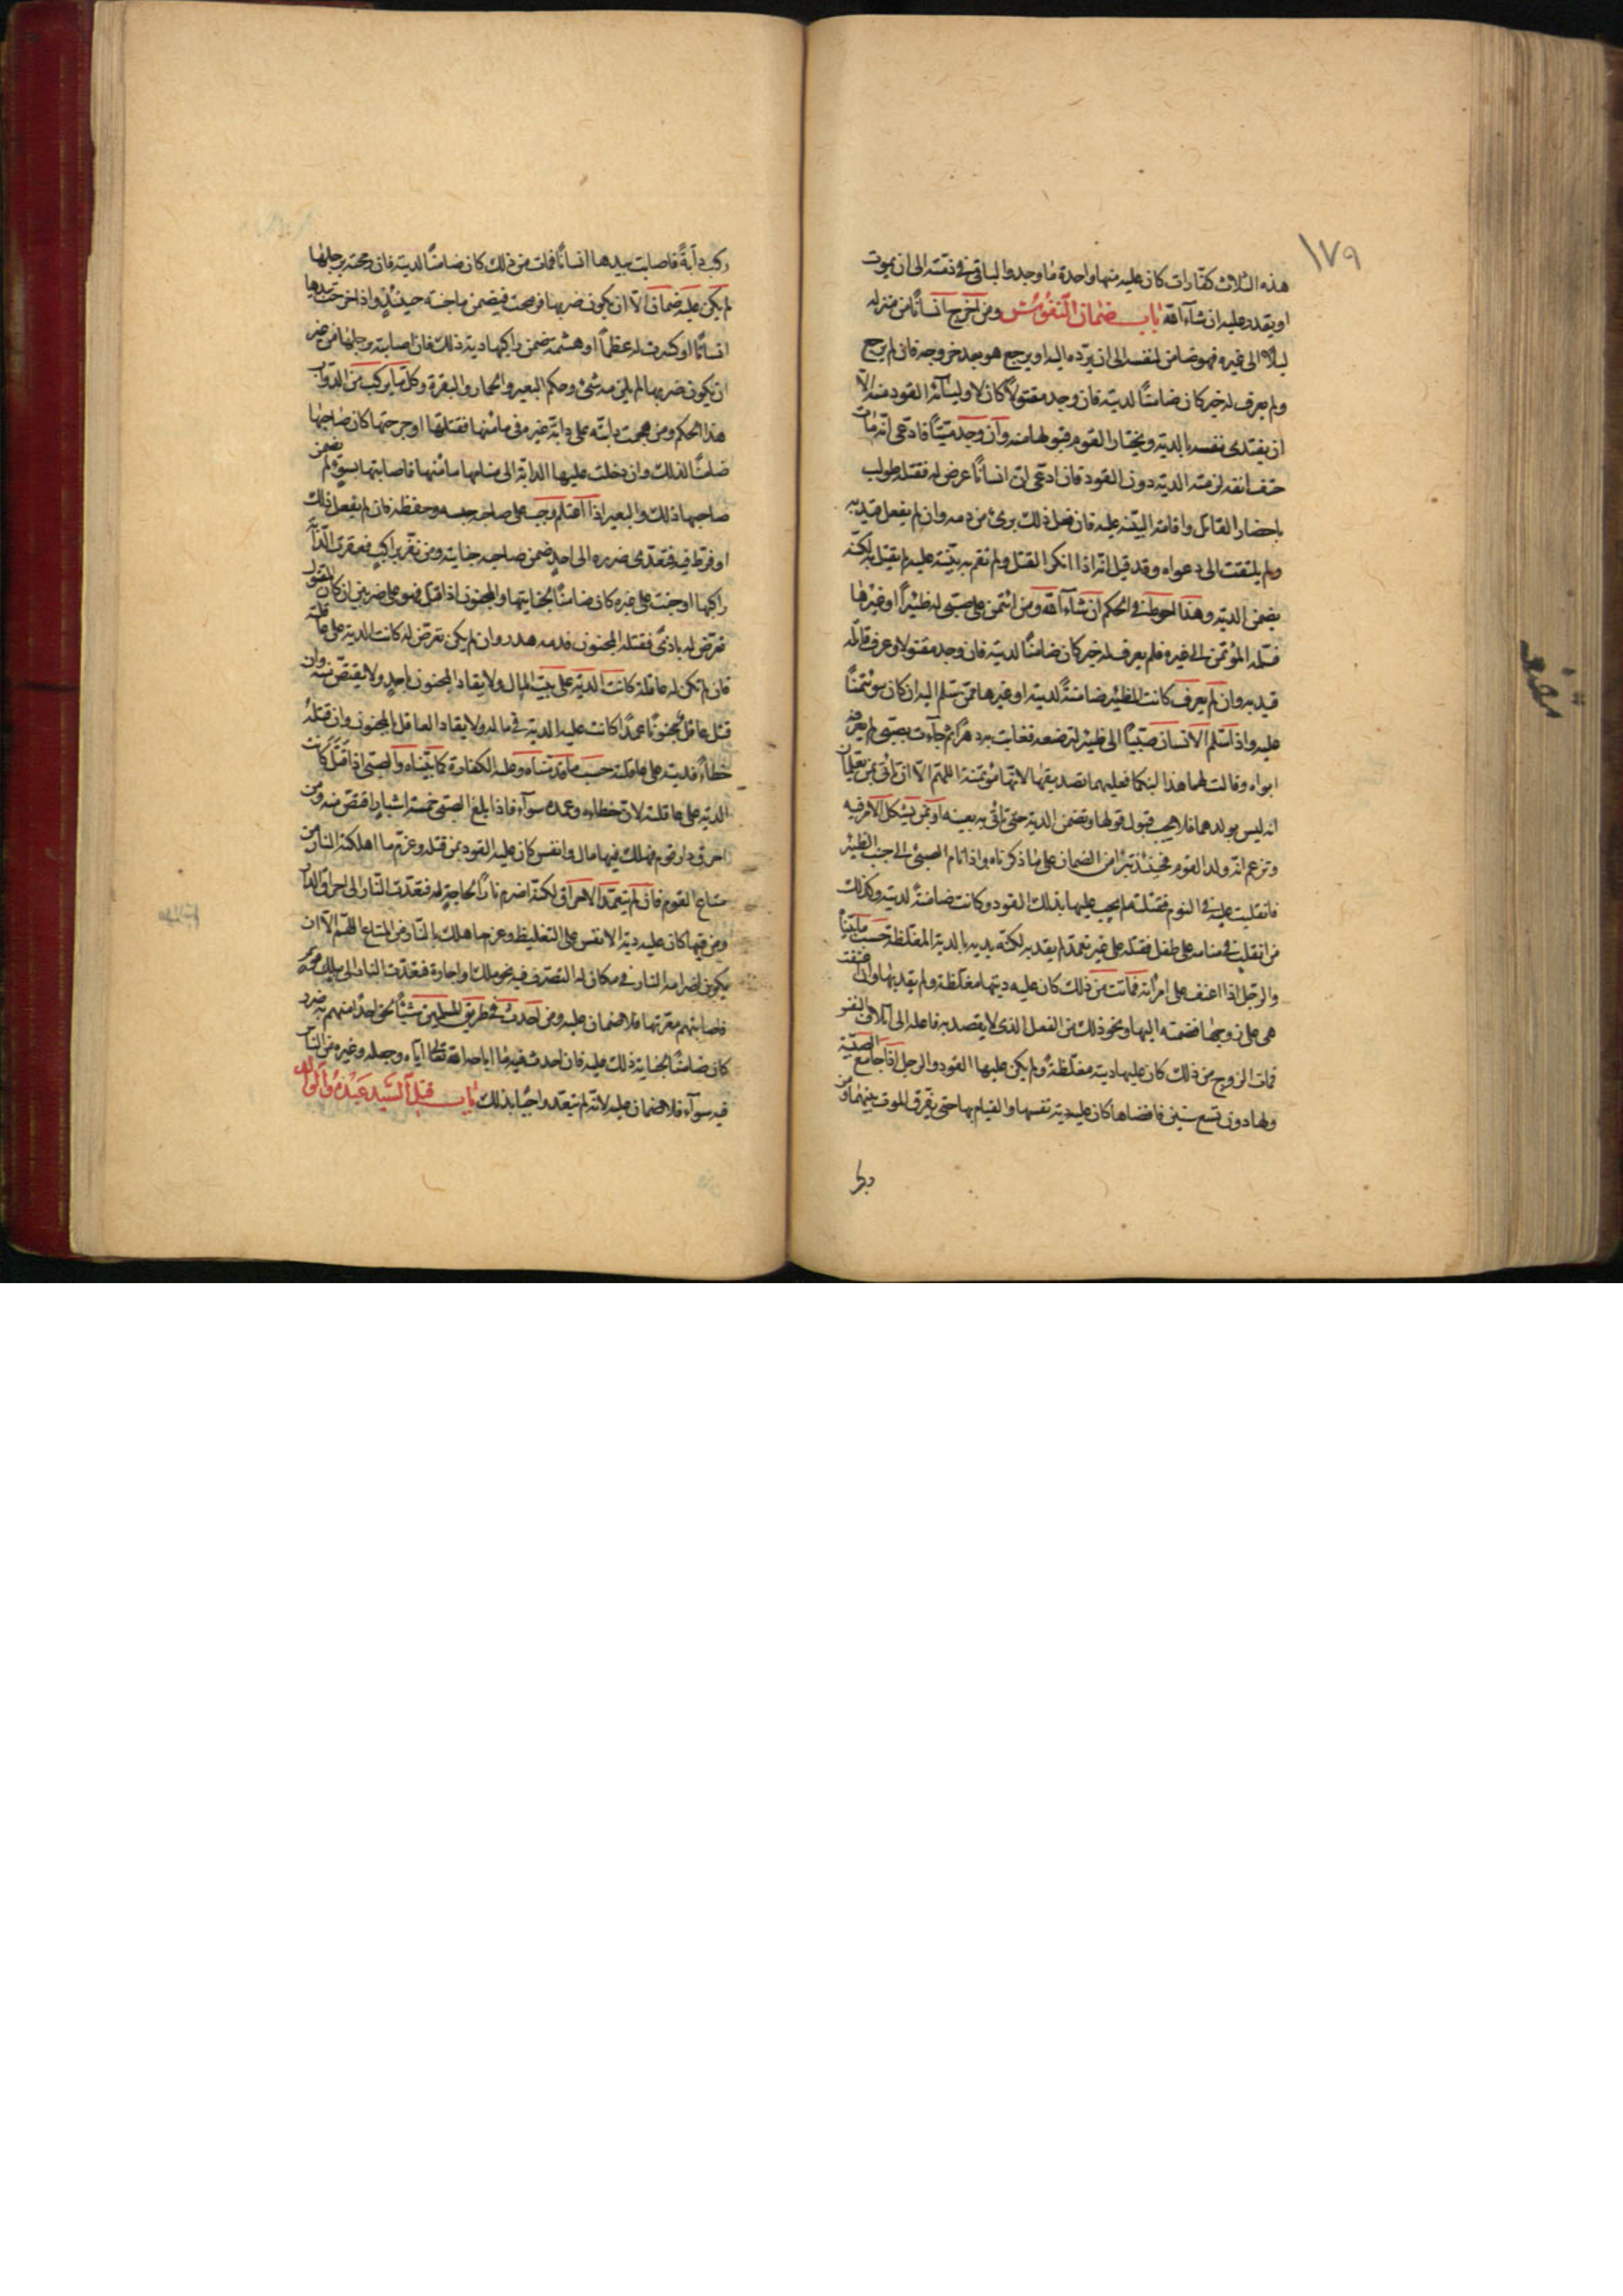 ١٧٩
هذه الثلاث كفارات كان عليه منها واحدة ما وجد والباقي في ذمته الى ان يموت
او يقدر عليه ان شاء الله باب ضمان النفوس ومن اخرج انسانا من منزله
ليلا الى غيره فهو ضامن لنفسه الى ان يرده اليه او يرجع هو بعد خروجه فان لم يرجع
ولم يعرف له خبر كان ضامنا لديته فان وجد مقتولا كان لاوليائه القود منه الا
ان يفتدى نفسه بالدية ويختار القوم قبولها منه وان وجد ميتا فادعى انه مات
حتف انفه لزمته الدية دون القود فان ادعى ان انسانا عرض له فقتله طولب
باحضار القاتل واقامة البينة عليه فان فعل ذلك برئ من دمه وان لم يفعل قيد به
ولم يلتفت الى دعواه وقد قيل انه اذا انكر القتل ولم تقم به بينة عليه لم يقتل به لكنه
يضمن الدية وهذا احوط في الحكم ان شاء الله ومن ائتمن على صبي له ظئيرا او غيرها
فسلمه المؤتمن الى غيره فلم يعرف له خبر كان ضامنا لديته فان وجد مقتولا وعرف قاتله
قيد به وان لم يعرف كانت الظئير ضامنة لديته او غيرها ممن يتسلم اليه ان كان مؤتمنا
عليه واذا اسلم الانسان صبيا الى ظئير لترضعه فغابت به دهرا ثم جاءت بصبي لم يعرفه
ابواه وقالت لهما هذا ابنكما فعليهما تصديقها لانها مؤتمنة اللهم الا ان تاتى بمن يعلمان
انه ليس بولدهما فلا يجب قبول قولها وتضمن الدية حتى تاتى به بعينه او بمن يشكل الامر فيه
وتزعم انه ولد القوم فحينئذ تبرا من الضمان على ما ذكرناه واذا نام الصبي الى جنب الظئير
فانقلبت عليه في النوم فقتلته لم يجب عليها بذلك القود وكانت ضامنة لديته وكذلك
من انقلب في منامه على طفل فقتله على غير تعمد لم يقد به لكنه يديه بالدية المغلظة حسب ما بيناه
والرجل اذا اعنف على امراته فماتت من ذلك كان عليه ديتها مغلظة ولم يقد بها وان اعنفت
هي على زوجها فضمته اليها ونحو ذلك من الفعل الذى لا يقصد به فاعله الى اتلاف النفس
فمات الزوج من ذلك كان عليها ديته مغلظة ولم يكن عليها القود والرجل اذا جامع الصبية
ولها دون تسع سنين فافضاها كان عليه دية نفسها والقيام بها حتى يفرق الموت بينهما ومن
ركب دابة فاصابت بيدها انسانا فمات من ذلك كان ضامنا لديته فان رمحته برجلها
لم يكن عليه ضمان الا ان يكون ضربها فرمحت فيضمن ما جنته حينئذ واذا جرحت بيدها
انسانا او كسرت له عظما او هشمته ضمن راكبها دية ذلك فان اصابته برجلها من غير
ان يكون ضربها لم يلزمه شئ وحكم البعير والحمار والبقرة وكل ما يركب من الدواب
هذا الحكم ومن هجمت دابته على دابة غيره في مامنها فقتلتها او جرحتها كان صاحبها
ضامنا لذلك وان دخلت عليها الدابة الى منامها مامنها فاصابتها بسوء لم يضمن
صاحبها ذلك والبعير اذا اغتلم وجب على صاحبه حبسه وحفظه فان لم يفعل ذلك
او فرط فيه فتعدى ضرره الى احد ضمن صاحبه جنايته ومن نفر براكب فعقرت الدابة
راكبها او جنت على غيره كان ضامنا لجنايتها والمجنون اذا قتل فهو على ضربين ان كان المقتول
تعرض له باذى فقتله المجنون فدمه هدر وان لم يكن تعرض له كانت الدية على عاقلته
فان لم تكن له عاقلة كانت الدية على بيت المال ولا يقاد المجنون باحد ولا يقتص منه وان
قتل عاقل مجنونا عمدا كانت عليه الدية في ماله ولا يقاد العاقل بالمجنون وان قتله
خطاء فديته على عاقلته حسب ما قدمناه وعليه الكفارة كما بيناه والصبي اذا قتل كانت
الدية على عاقلته لان خطاءه وعمده سواء فاذا بلغ الصبي خمسة اشبار اقتص منه ومن
احرق دار قوم فهلك فيها مال وانفس كان عليه القود بمن قتله وغرم ما اهلكته النار من
متاع القوم فان لم يتعمد الاحراق لكنه اضرم نارا لحاجة له فتعدت النار الى احراق الدار
ومن فيها كان عليه دية الانفس على التغليظ وغرم ما هلك بالنار من المتاع اللهم الا ان
يكون اضرامه النار في مكان له التصرف فيه نحو ملك او اجارة فتعدت النار الى ملك قوم
فاصابتهم معرتها فلا ضمان عليه ومن احدث في طريق المسلمين شيئا لحق احدا منهم به ضرر
كان ضامنا لجناية ذلك عليه فان احدث فيه ما اباحه الله تعالى اياه وجعله وغيره من الناس
فيه سواء فلا ضمان عليه لانه لم يتعد واجبا بذلك باب قتل السيد عبده والوالد